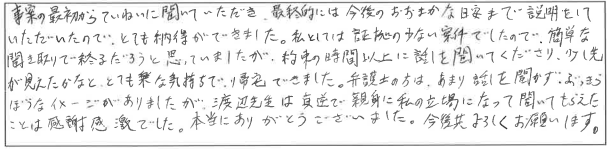 事案の最初からていねいに聞いていただき、最終的には今後のおおまかな目安まで説明をして
いただいたので、とても納得ができました。私としては証拠の少ない案件でしたので、簡単な
聞き取りで終るだろうと思っていましたが、約束の時間以上に話しを聞いてくださり、少し先
が見えたかなと、とても楽な気持ちで帰宅できました。弁護士の方は、あまり話しを聞かず、ぶっきら
ぼうなイメージがありましたが、渡辺先生は真逆で親身に私の立場になって聞いてもらえた
ことは感謝感激でした。本当にありがとうございました。今後共よろしくお願いします。